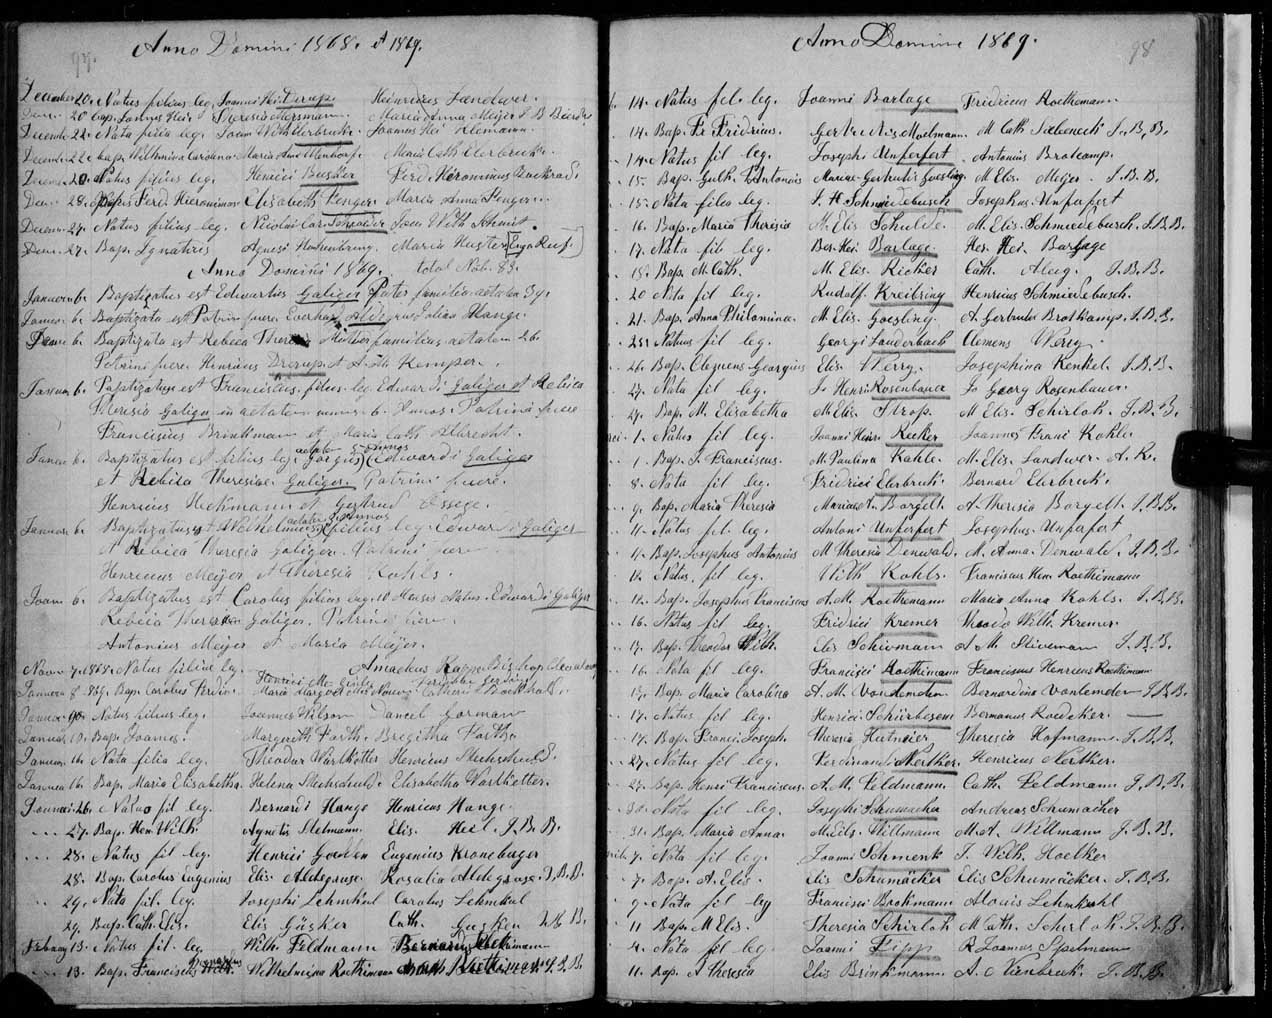 Anno Domini 1868. et 1869.
97.
December 20. Natus filius leg. Joanni Hei. Derup. Heinricus Landwer.
20 bap. Theresia Mersmann Maria Anna Meijer J B
Decemb. 22. Nata filia leg. Joan With Elerbrock. Joannes Hei Klemann.
Decemb. 22 bap. Wilhmina Carolina Maria Ana Maria Cath Elerbrock.
Decem. 20. Natus filius leg. Henrici Busker Ferd. Hieronimus
Dec. 28. Bapis Ferd Hieronimus Elisabeth Fenger Maria Anna Fenger
Decem. 27. Natus filius leg. Nicolai Car. Schroeder Joan With Schmidt.
Dem. 27. Bap. Ignatius Agnesi Maria Huster
Anno Domini 1869. total Nab. 88.
Januar. 6. Baptizatus est Edwartus Galiger Pater familias aetatem 34.
Januar. 6. Baptizata est Patrini fuere Everhard
Januar 6. Baptizata est Rebeca Theresia Mutter familias aetatem 26.
Patrini fuere Henricus Drerup et A. M. Kemper.
Januar 6. Baptizatus est Franciscus, filius leg. Edwardi Galiger et Rebica
Theresia Galiger in aetatem annus 6. Annos. Patrini fuere
Francisius Brinkman et Maria Cath Albrecht.
aetate 5 Annos
Januar 6. Baptizatus est filius leg. Gorgius (Edwardi Galiger
et Rebica Theresiae Galiger. Patrini fuere.
Henricus Heckmann et Gertrud Ossege.
aetate 3 Annos
Januar. 6. Baptizatus est Wilhelmus filius leg. Edwardi Galiger
et Rebicca Theresia Galiger. Patrini fuere
Henricus Meijer et Theresia Kohls.
Janu. 6. Baptizatus est Carolus filius leg. 10 Menses Natus. Edwardi Galiger
Rebeca Theresia Galiger. Patrini fuere.
Antonius Meijer et Maria Meijer.
Nov. 7. 1868. Natus filius leg. Henrici Amadeus Rappe Bishop Cleveland
Januar 8 869. Bap. Carolus Ferdin. Maria Margaretha
Januar 9. Natus filius leg. Joannis Wilson Daniel Gorman
Januar 10. Bap. Joannes. Margareth Farth. Bregitha Farth.
Januar 14. Nata filia leg. Theodor Wortketter Henricus Stechschuld.
Januar 16. Bap. Maria Elisabetha. Helena Stechschuld. Elisabetha Wortketter.
Januar. 26. Natus fil leg. Bernardi Hange Henricus Hange.
... 27. Bap. Hen. With. Agnetis Stelmann. Elis. Heil. J. B. B.
... 28. Natus fil. leg. Henrici Gerdden Eugenius Kroneberger
28. Bap. Carolus Eugenius Elis. Aldegause. Rosalia Aldegause. J. B. B.
... 29. Nata fil. leg. Josephi Lehmkul Carolus Lehmkul
... 29. Bap. Cath. Elis. Elis Güsker Cath. Gusken J. B. B.
February 13. Natus fil. leg. With. Feldmann
... 13. Bap. Franciscus Wilhelmina Roethimann J. B. B.
Anno Domini 1869.
98
14. Natus fil. leg. Joanni Barlage Fridricus Roethemann.
14. Bap. Fr Fridrius. Gertrudis Moelmann. M. Cath J. B. B.
14. Natus fil leg. Josephi Unferfert. Antonius Brotcamp.
15. Bap. Gulh. Antonius Mariae Gertrutis Goesling. M Elis. Meijer. J. B. B.
15. Nata filia leg. J. H. Schmiedebusch Josephus Unferfert
16. Bap. Maria Theresia M. Elis Schulde. M. Elis. Schmiedebusch. J. B. B.
17. Nata fil leg. Ber. Hei Barlage. Her. Hei. Barlage
18. Bap. M. Cath. M. Elis. Rickes Cath. J. B. B.
20 Nata fil leg. Rudolf. Kreibring Henricus Schmiedebusch.
21. Bap. Anna Philomina. M. Elis. Goesling. A. Gertrudis Brotkamp. J. B. B.
25. Natus fil. leg. Georgi Lauderbach Clemens Werry.
26. Bap. Clemens Georgius Elis Werry. Josephina Kenkel. J. B. B.
27. Nata fil leg. Jo Henri Rosenbauer Jo Georg Rosenbauer.
29. Bap. M. Elisabetha M. Elis. Strop. M Elis. Schirloh. J. B. B.
1. Natus fil leg. Joanni Heinr. Recker Joannes Frani Kahle
1. Bap. J. Franciscus. M. Paulina Kahle. M. Elis. Landwer. A. K.
8. Nata fil. leg. Fridrici Elerbrock. Bernard Elerbrock.
9. Bap. Maria Theresia Maria An. Borgelt. A. Theresia Borgelt. J. B. B.
11. Natus fil leg. Antoni Unferfert Josephus Unferfert
11. Bap. Josephus Antonius M Theresia Denwald. M. Anna. Denwald. J. B. B.
12. Natus. fil leg. With Kohls. Franciscus Hen. Roethimann
12. Bap. Josephus Franciscus A. M. Roethemann Maria Anna Kohls. J. B. B.
16. Natus fil leg. Fridrici Kremer Theodo With. Kremer.
17. Bap. Theodor With. Elis Schivman A. M. Stiveman J. B. B.
16. Nata fil leg. Francisci Roethimann Franciscus Henricus Roethimann
17. Bap. Maria Carolina A. M. Vonlemden Bernardina Vonlemden J. B. B.
17. Natus fil leg. Henrici Schürbesem Bermanus Roedeker.
17. Bap. Franci. Joseph. Theresia Hutmeier Theresia Hofmann. J. B. B.
27. Natus fil leg. Ferdinandi Nerther. Henricus Nerther.
27. Bap. Henri Franciscus. A. M. Feldmann. Cath. Feldmann J. B. B.
30. Nata fil leg. Josephi Schumacher Andreas Schumacher
31. Bap. Maria Anna. M. Eils. Willmann M. A. Willmann J. B. B.
7. Nata fil leg. Joanni Schmenk J. With. Hoelker
7. Bap. A. Elis. Elis Schumäcker Elis Schumäcker. J. B. B.
9. Nata fil leg Francisci Brokmann Alouis Lehmkuhl
11 Bap. M Elis. Theresia Schirloh M Cath. Schirloh J. B. B.
4. Nata fil leg. Joanni Fipp R. Joannes Spelmann
11. Bap. A Theresia Elis Brinkmann. A. C Nienbreck. J. B. B.